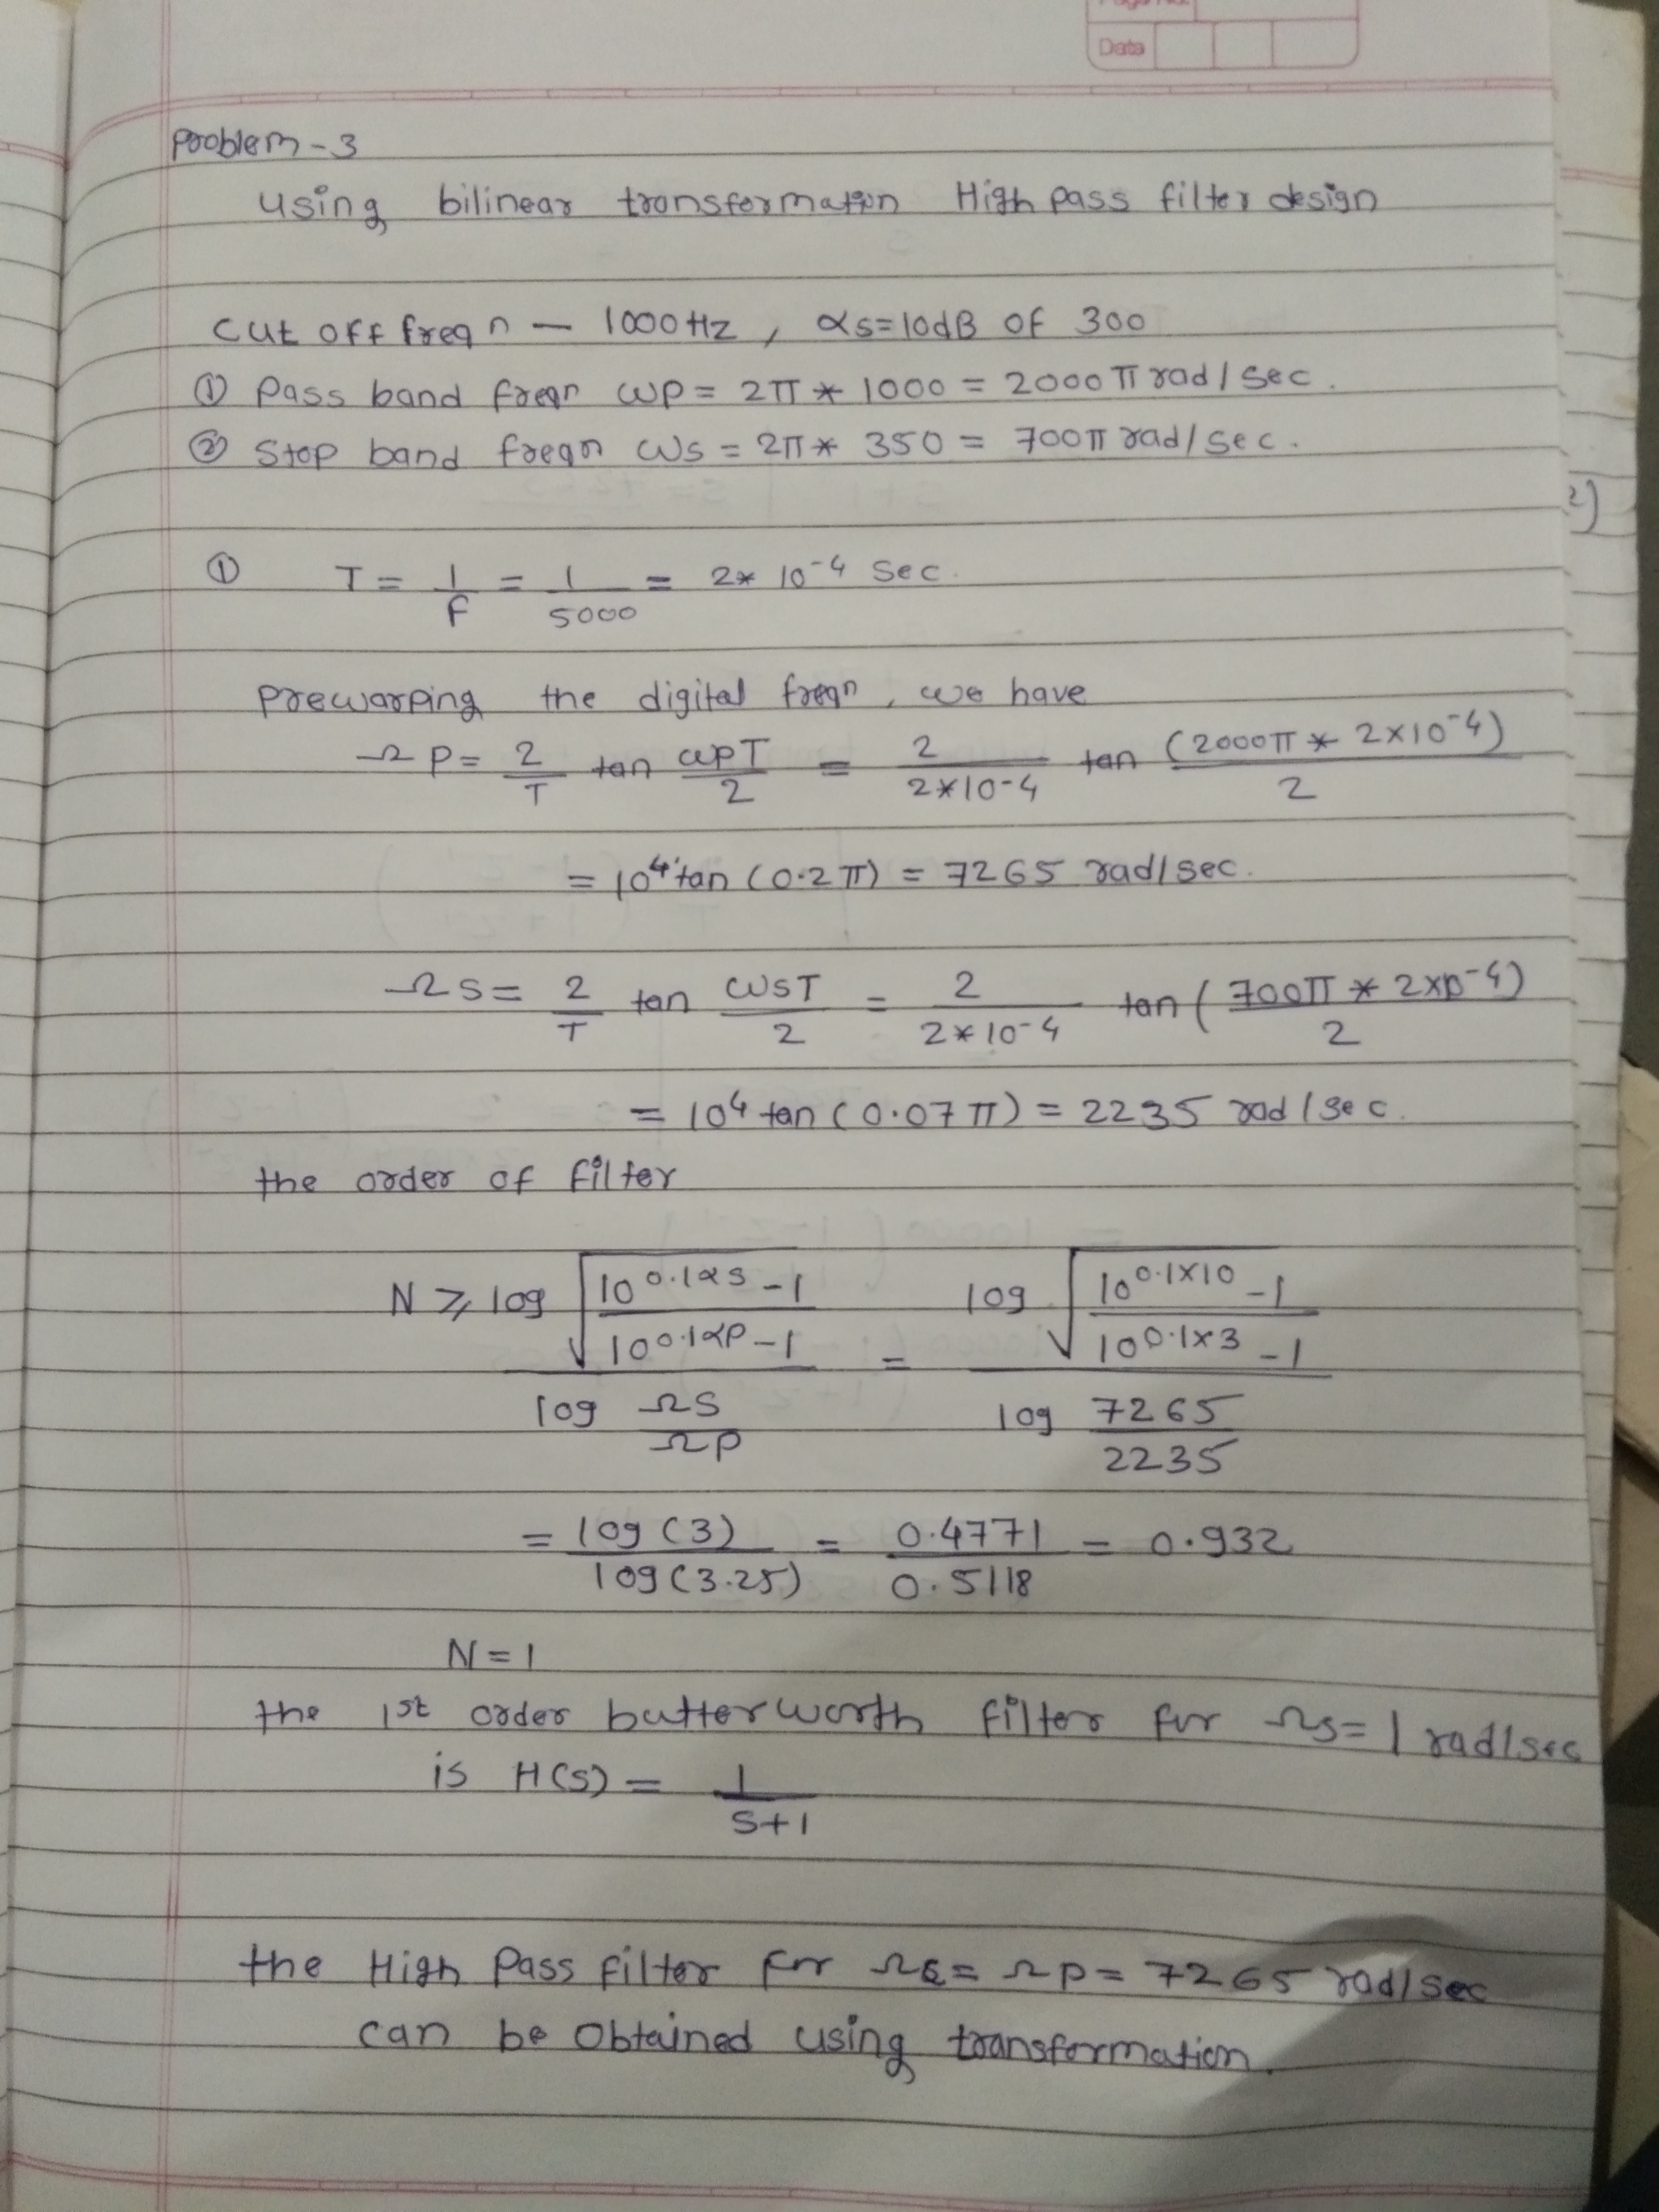 Data
Problem-3
Using bilinear transformation High pass filter design
Cut off freqn — 1000Hz, αs=10dB of 300
① Pass band freqn ωp = 2π * 1000 = 2000π rad/sec.
② Stop band freqn ωs = 2π * 350 = 700π rad/sec.
2)
① T = 1/F = 1/5000 = 2* 10^-4 Sec.
prewarping the digital freqn, we have
Ωp = 2/T tan ωpT/2 = 2/2*10^-4 tan (2000π * 2×10^-4)/2
= 10^4 tan (0.2π) = 7265 rad/sec.
Ωs = 2/T tan ωsT/2 = 2/2*10^-4 tan (700π * 2×10^-4)/2
= 10^4 tan (0.07π) = 2235 rad/sec.
the order of filter
N ≥ log √(10^0.1αs -1 / 10^0.1αp -1) / log Ωs/Ωp = log √(10^0.1×10 -1 / 10^0.1×3 -1) / log 7265/2235
= log(3)/log(3.25) = 0.4771/0.5118 = 0.932
N=1
the 1st order butterworth filter for Ωs= 1 rad/sec
is H(s) = 1/S+1
the High Pass filter for Ωc= Ωp= 7265 rad/sec
can be obtained using transformation.